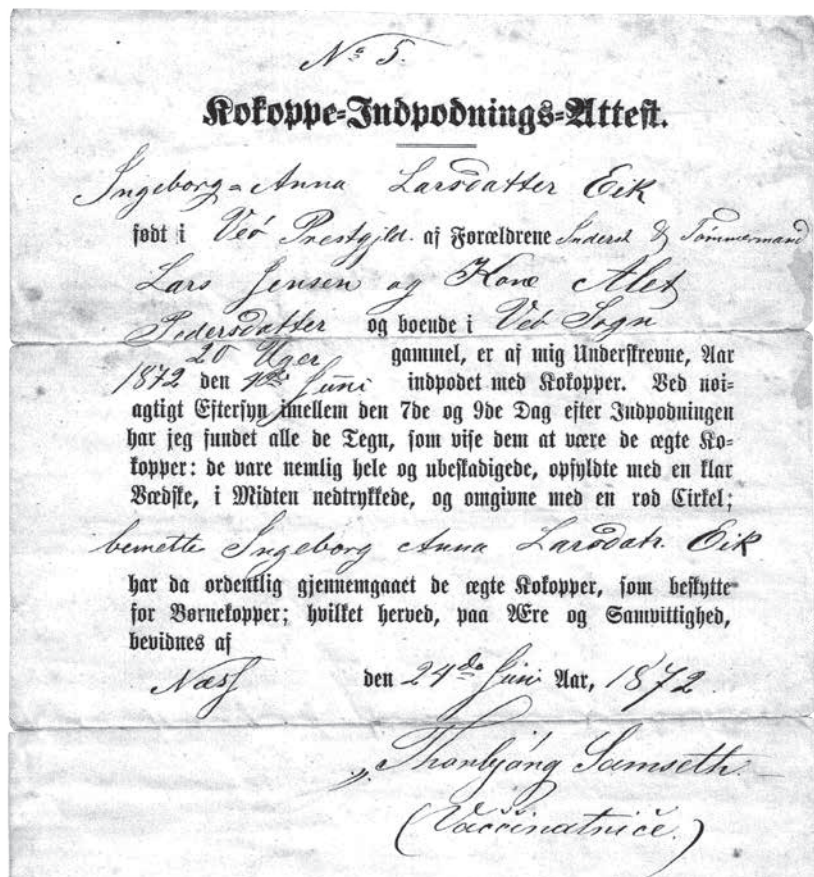 No 5.
Kokoppe-Indpodnings-Attest.
Ingeborg-Anna Larsdatter Eik
født i Veö Prestgjld. af Forældrene Inderst & Tømmermand
Lars Jensen og Kone Alet
Pedersdatter og boende i Veö Sogn
20 Uger gammel, er af mig Underskrevne, Aar
1872 den Juni indpodet med Kokopper. Ved nøi-
agtigt Eftersyn imellem den 7de og 9de Dag efter Indpodningen
har jeg fundet alle de Tegn, som vise dem at være de ægte Ko-
kopper: de vare nemlig hele og ubeskadigede, opfyldte med en klar
Vædske, i Midten nedtrykkede, og omgivne med en rød Cirkel;
bemette Ingeborg Anna Larsdatr. Eik
har da ordentlig gjennemgaaet de ægte Kokopper, som beskytte
for Børnekopper; hvilket herved, paa Ære og Samvittighed,
bevidnes af
Næss den 24de Juni Aar, 1872
Thonbjöng Samseth.
(Vaccinatrice.)